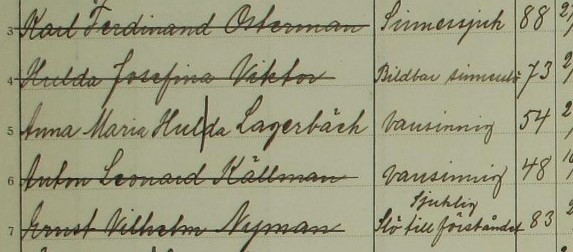 3 Karl Ferdinand Osterman Sinnessjuk 88 2
4 Hulda Josefina Viktor Bildbar sinnesslö 73 2
5 Anna Maria Hulda Lagerbäck vansinnig 54 2
6 Anton Leonard Källman vansinnig 48
Sjuklig
7 Ernst Vilhelm Nyman Slö till förståndet 83 2